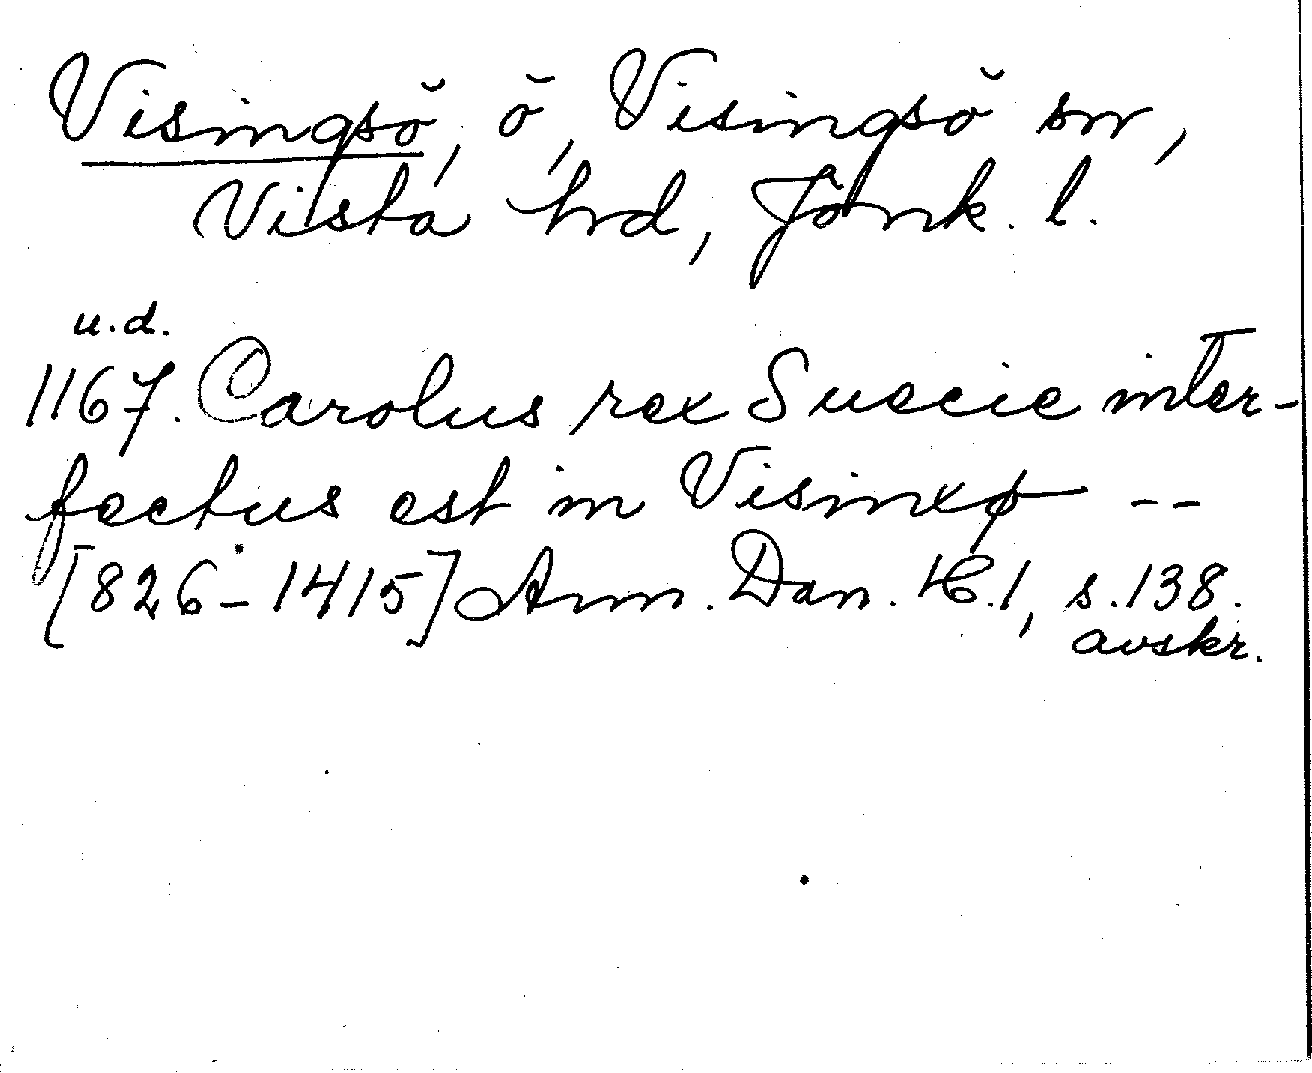 Visingsö, ö, Visingsö sn,
Vista hrd, Jönk. l.
u.d.
1167. Carolus rex Suecie inter-
fectus est in Visinxø --
[826-1415] Ann. Dan. H.1, s.138.
avskr.